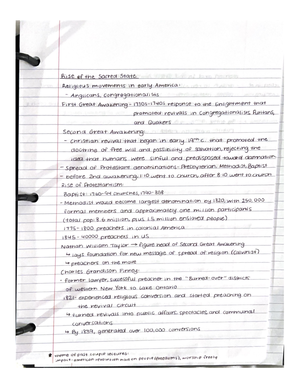 Rise of the Sacred State:
Religious movements in early America:
- Anglicans, Congregationalists
First Great Awakening - 1730s-1740s response to the Enlightenment that
promoted revivals in Congregationalists, Puritans,
and Quakers
Second Great Awakening:
- Christian revival that began in early 19th c. that promoted the
doctrine of free will and possibility of salvation, rejecting the
idea that humans were sinful and predisposed toward damnation
- Spread of Protestant denominations: Presbyterian, Methodist, Baptist
- before 2nd awakening: 1:10 went to church, after 8:10 went to church
Rise of Protestantism
Baptist:
- Methodist would become largest denomination by 1820, with 250,000
formal members and approximately one million participants
(total pop. 9.6 million, plus 1.5 million enslaved people)
1775 - 1800 preachers in colonial America
1845 - 40000 preachers in US
Nathan William Taylor → figure head of Second Great Awakening
↳ lays foundation for new message of spread of religion (Calvinist)
↳ preachers on the move
Charles Grandison Finney:
- Former lawyer, successful preacher in the "burned-over" district
of western New York to Lake Ontario
- 1821: experienced religious conversion and started preaching on
the revival circuit
↳ turned revivals into public affairs, spectacles, and communal
conversations
↳ By 1832, generated over 100,000 conversions